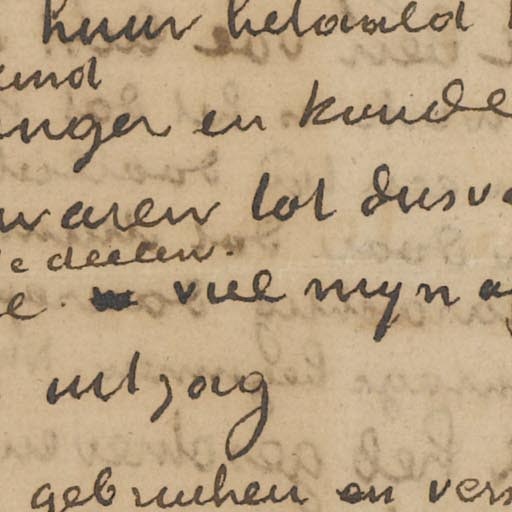 huur betaald
kind
nger en koude
waren tot dusv
deelen.
viel mijn a
uitzag
gebruiken en vers